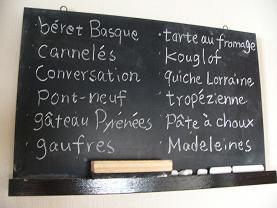 béret Basque
cannelés
Conversation
pont-neuf
gâteau Pyrénées
gaufres
tarte au fromage
Kouglof
quiche Lorraine
tropézienne
Pâte à choux
Madeleines